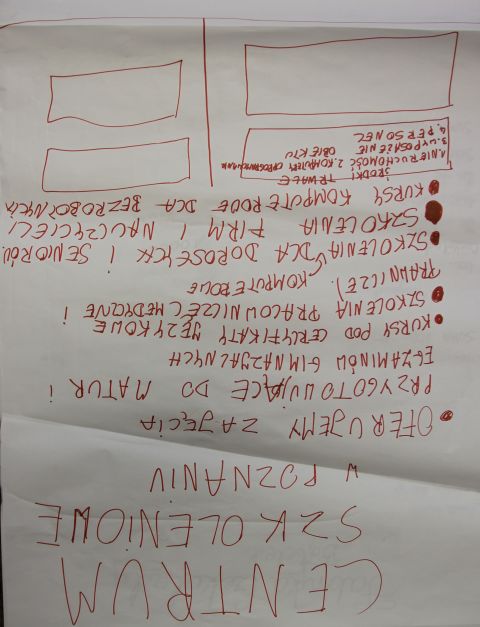 CENTRUM
SZKOLENIOWE
W POZNANIU
OFERUJEMY ZAJĘCIA
PRZYGOTOWUJĄCE DO MATUR I
EGZAMINÓW GIMNAZJALNYCH
KURSY POD CERTYFIKATY JĘZYKOWE
SZKOLENIA PRACOWNICZE (MEDYCZNE I
PRAWNICZE) KOMPUTEROWE
SZKOLENIA DLA DOROSŁYCH I SENIORÓW
SZKOLENIA FIRM I NAUCZYCIELI
KURSY KOMPUTEROWE DLA BEZROBOTNYCH
ŚRODKI TRWAŁE
1. NIERUCHOMOŚĆ 2. KOMPUTERY
3. WYPOSAŻENIE OBIEKTU
4. PERSONEL